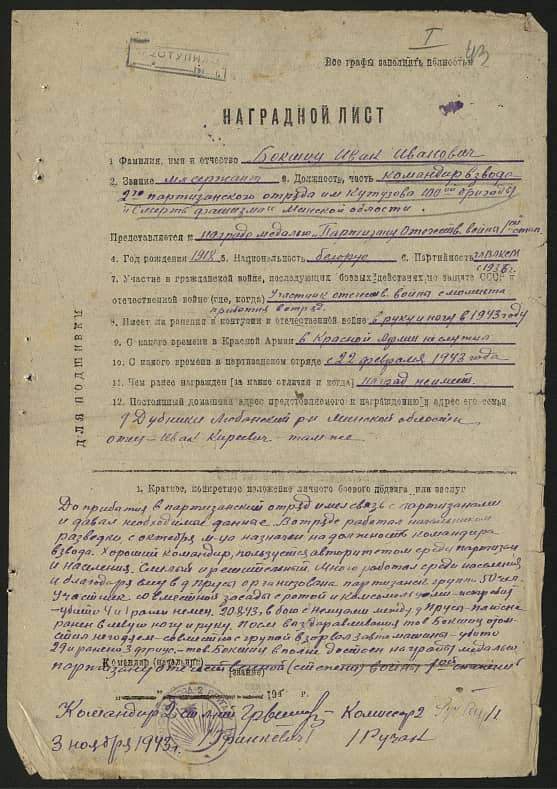 I 43
Все графы заполнить полностью
НАГРАДНОЙ ЛИСТ
1. Фамилия, имя и отчество Бокшиц Иван Иванович
2. Звание мл сержант 3. Должность, часть командир взвода
2го партизанского отряда им Кутузова 100ой бригады
"Смерть фашизму" Минской области.
Представляется к награде медалью "Партизану Отечеств. войны" 1ой степ.
4. Год рождения 1918 5. Национальность белорус 6. Партийность чл ВЛКСМ
с 1936 г
7. Участие в гражданской войне, последующих боевых действиях по защите СССР и
отечественной войне (где, когда) Участник отечеств. войны с момента
прибытия в отряд.
8. Имеет ли ранения и контузии в отечественной войне в руку и ногу в 1943 году
9. С какого времени в Красной Армии в Красной Армии не служил
10. С какого времени в партизанском отряде с 22 февраля 1943 года
11. Чем ранее награжден [за какие отличия и когда] наград не имеет.
12. Постоянный домашний адрес представляемого к награждению и адрес его семьи
д Дубники Любанский р-н Минской области
отец - Иван Киреевич - там же
ДЛЯ ПОДШИВКИ
1. Краткое, конкретное изложение личного боевого подвига или заслуг
До прибытия в партизанский отряд имел связь с партизанами
и давал необходимые данные. В отряде работал начальником
разведки, с октября м-ца назначен на должность командира
взвода. Хороший командир, пользуется авторитетом среди партизан
и населения. Смелый и решительный. Много работал среди населения
и благодаря ему в д Прусы организована партизанск группа 50 чел.
Участник совместной засады с ротой
убито 4 и 1 ранен немец. 20.8.43, в бою с немцами между д Прусы
ранен в левую ногу и руку. После выздоравливания тов Бокшиц
совместно с группой взорвал автомашины - убито
29 и ранено 3 тов Бокшиц вполне достоен награды медалью
партизану отечественной (степени) войны 1ой степени
Командир (начальник)
(звание)
194 г.
Командир 2 Комиссар 2
3 ноября 1943 г. /Гранкевич/ /Рузан/